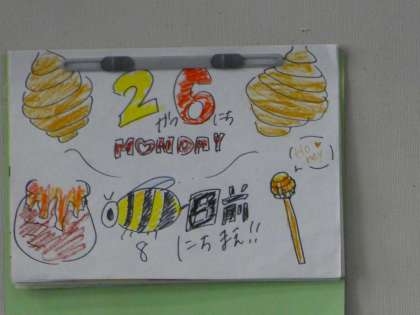 2がつ6にち
MONDAY
Honey
8日前
にちまえ!!